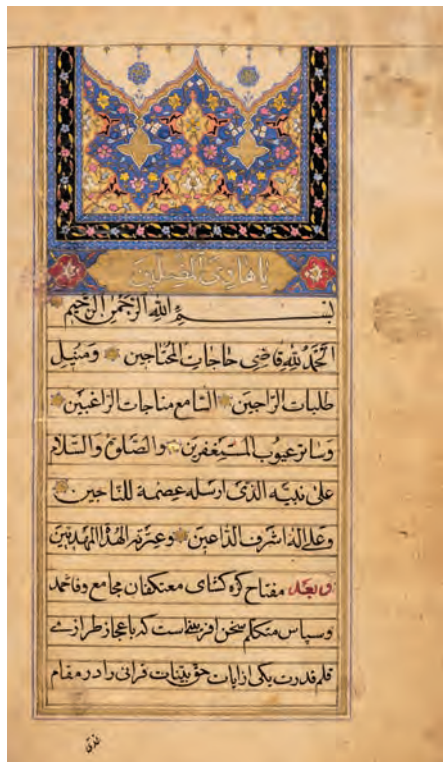 یا هادی المضلین
بسم الله الرحمن الرحیم
الحمد لله قاضی حاجات المحتاجین و منیل
طلبات الراجین السامع مناجات الراغبین
وساتر عیوب المستغفرین والصلوة والسلام
علی نبیه الذی ارسله عصمة للناجین
وعلی اله اشرف الداعین وعترته الهداة المهدیین
وبعد مفتاح کره کشای معتکفان مجامع وفا حمد
وسپاس متکلم سخن افرینیست که باعجاز طرازی
قلم قدرت یکی از ایات حق بینات قرانی را در مقام